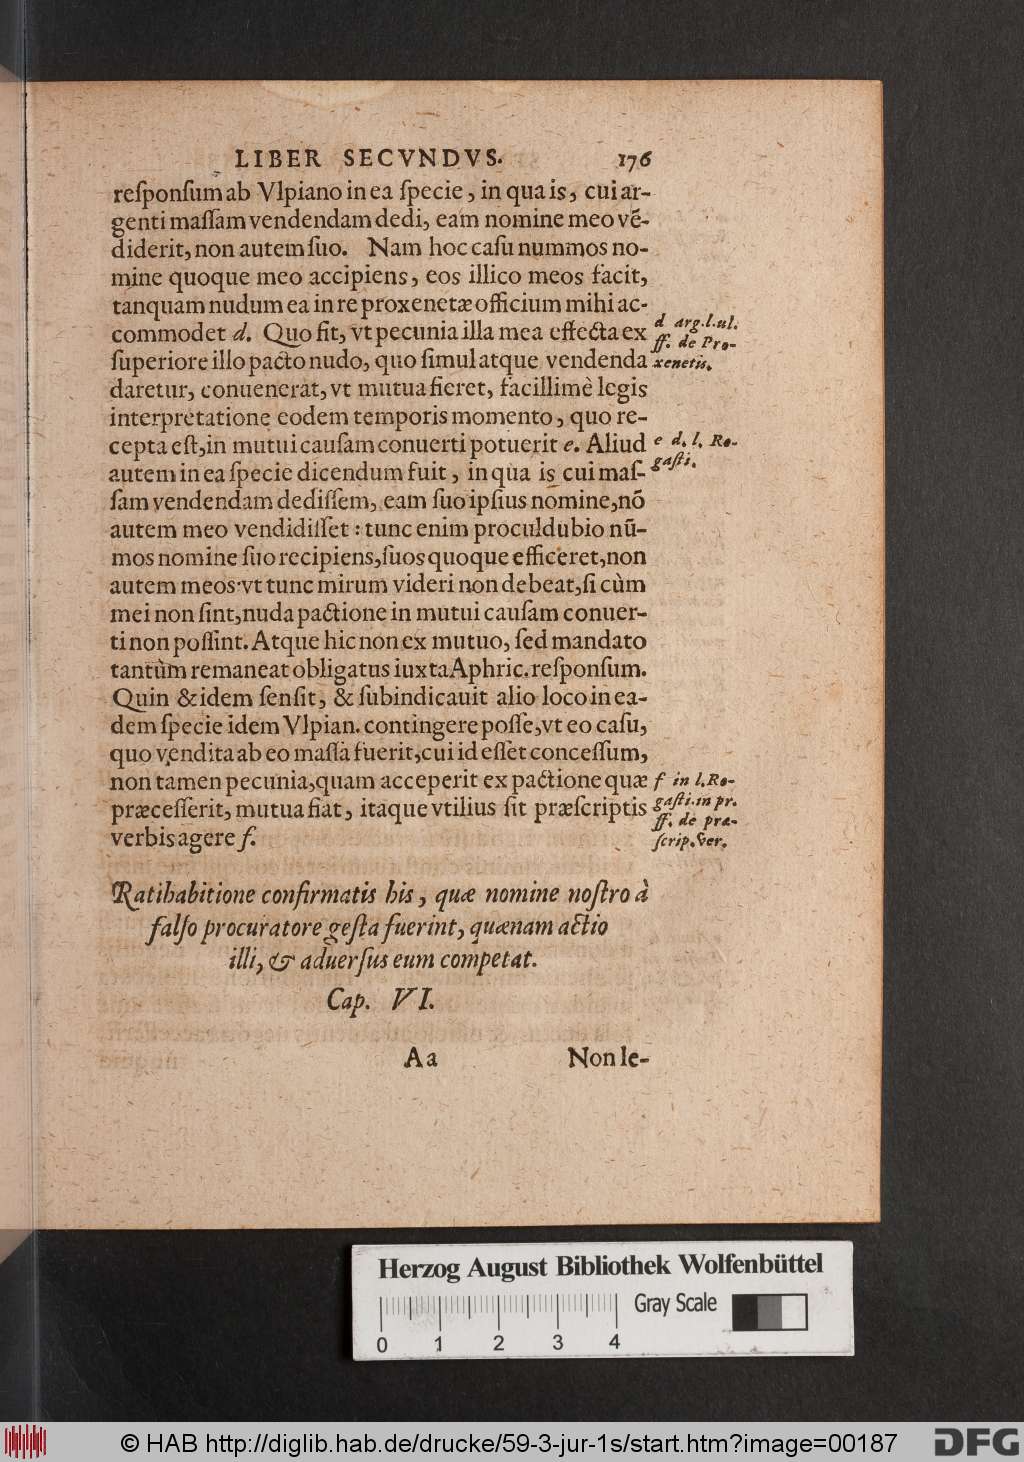 LIBER SECVNDVS. 176
reſponſum ab Vlpiano in ea ſpecie, in qua is, cui ar-
genti maſſam vendendam dedi, eam nomine meo vẽ-
diderit, non autem ſuo. Nam hoc caſu nummos no-
mine quoque meo accipiens, eos illico meos facit,
tanquam nudum ea in re proxenetæ officium mihi ac-
commodet d. Quo fit, vt pecunia illa mea effecta ex
ſuperiore illo pacto nudo, quo ſimulatque vendenda
daretur, conuenerat, vt mutua fieret, facillimè legis
interpretatione eodem temporis momento, quo re-
cepta eſt, in mutui cauſam conuerti potuerit e. Aliud
autem in ea ſpecie dicendum fuit, in qua is cui maſ-
ſam vendendam dediſſem, eam ſuo ipſius nomine, nõ
autem meo vendidiſſet: tunc enim proculdubio nũ-
mos nomine ſuo recipiens, ſuos quoque efficeret, non
autem meos: vt tunc mirum videri non debeat, ſi cùm
mei non ſint, nuda pactione in mutui cauſam conuer-
ti non poſſint. Atque hic non ex mutuo, ſed mandato
tantùm remaneat obligatus iuxta Aphric. reſponſum.
Quin & idem ſenſit, & ſubindicauit alio loco in ea-
dem ſpecie idem Vlpian. contingere poſſe, vt eo caſu,
quo vendita ab eo maſſa fuerit, cui id eſſet conceſſum,
non tamen pecunia, quam acceperit ex pactione quæ
præceſſerit, mutua fiat, itaque vtilius ſit præſcriptis
verbis agere f.
d arg.l.ul.
ff. de Pro-
xenetis.
e d. l. Ro-
gaſti.
f in l. Ro-
gaſti. in pr.
ff. de præ-
ſcrip. ver.
Ratihabitione confirmatis his, quæ nomine noſtro à
falſo procuratore geſta fuerint, quænam actio
illi, & aduerſus eum competat.
Cap. VI.
Aa Non le-
Herzog August Bibliothek Wolfenbüttel
Gray Scale
0 1 2 3 4
© HAB http://diglib.hab.de/drucke/59-3-jur-1s/start.htm?image=00187
DFG